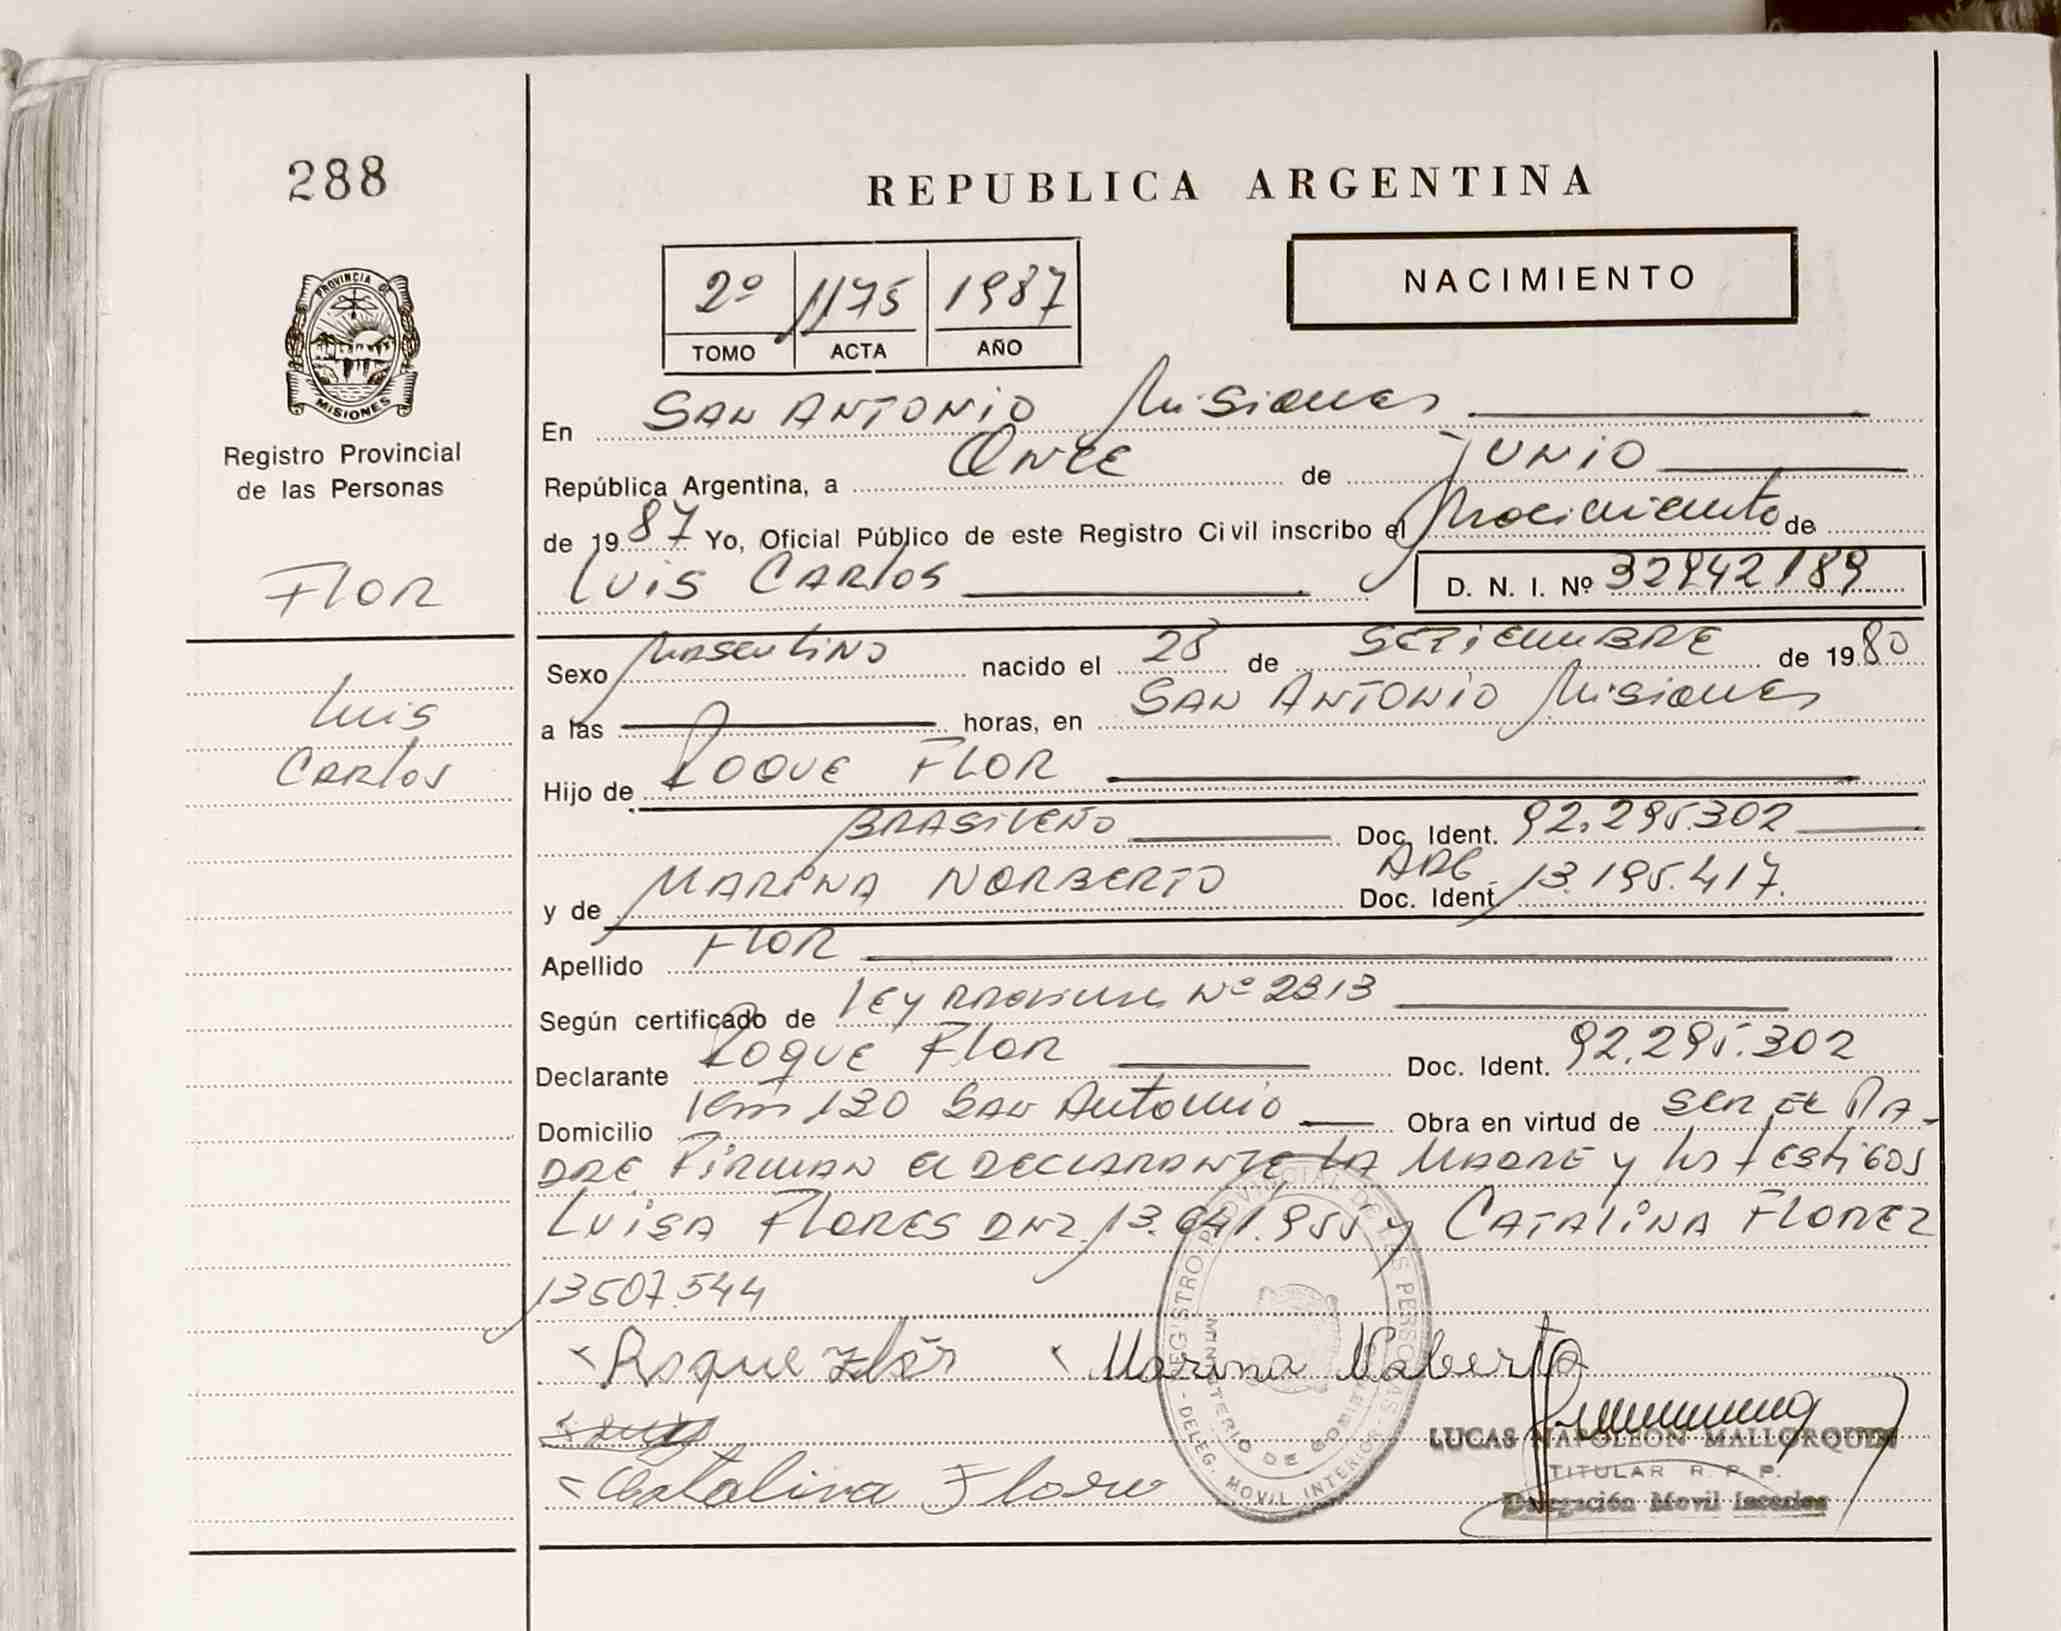 288
REPUBLICA ARGENTINA
2º 1175 1987
TOMO ACTA AÑO
NACIMIENTO
PROVINCIA DE MISIONES
Registro Provincial
de las Personas
Flor
Luis
Carlos
En SAN ANTONIO Misiones
República Argentina, a Once de JUNIO
de 1987 Yo, Oficial Público de este Registro Civil inscribo el Nacimiento de
Luis CARlos D. N. I. Nº 32942189
Sexo Masculino nacido el 28 de SETIEMBRE de 1980
a las horas, en SAN ANTONIO Misiones
Hijo de ROQUE FLOR
BRASILEÑO Doc. Ident. 92.295.302
y de MARINA NORBERTO ARG Doc. Ident. 13.195.417.
Apellido FLOR
Según certificado de LEY Nº 2313
Declarante Roque Flor Doc. Ident. 92.295.302
Domicilio Km 130 San Antonio Obra en virtud de SER EL PA-
DRE FIRMAN EL DECLARANTE LA MADRE y los testigos
LUISA FLORES DNI. 13.641.955 y CATALINA FLOREZ
13507.544
Roque Flôr Marina Naberto
Catalina
REGISTRO PROVINCIAL DE LAS PERSONAS
MINISTERIO DE GOBIERNO
DELEG. MOVIL INTERIOR
LUCAS NAPOLEON MALLORQUIN
TITULAR R. P. P.
Delegación Movil Interior